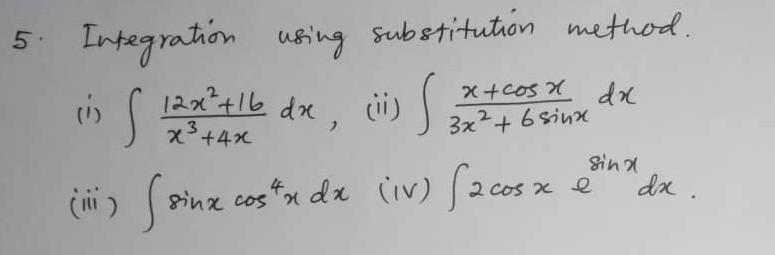 5. Integration using substitution method.
(i) ∫ (12x²+16)/(x³+4x) dx, (ii) ∫ (x+cos x)/(3x²+6 sinx) dx
(iii) ∫ sinx cos⁴x dx (iv) ∫ 2 cos x e^(sin x) dx.